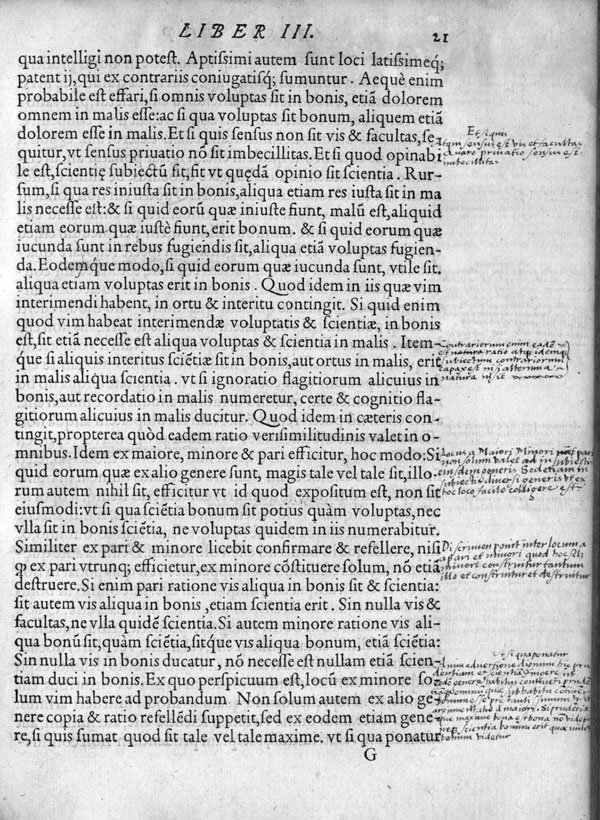 LIBER III.
21
qua intelligi non potest. Aptissimi autem sunt loci latissimeq;
patent ij, qui ex contrariis coniugatisq; sumuntur. Aequè enim
probabile est effari, si omnis voluptas sit in bonis, etiā dolorem
omnem in malis esse: ac si qua voluptas sit bonum, aliquem etiā
dolorem esse in malis. Et si quis sensus non sit vis & facultas, se-
quitur, vt sensus priuatio nō sit imbecillitas. Et si quod opinabi
le est, scientię subiectū sit, sit vt quędā opinio sit scientia. Rur-
sum, si qua res iniusta sit in bonis, aliqua etiam res iusta sit in ma
lis necesse est: & si quid eorū quæ iniuste fiunt, malū est, aliquid
etiam eorum quæ iustè fiunt, erit bonum. & si quid eorum quæ
iucunda sunt in rebus fugiendis sit, aliqua etiā voluptas fugien-
da. Eodemque modo, si quid eorum quæ iucunda sunt, vtile sit,
aliqua etiam voluptas erit in bonis. Quod idem in iis quæ vim
interimendi habent, in ortu & interitu contingit. Si quid enim
quod vim habeat interimendæ voluptatis & scientiæ, in bonis
est, sit etiā necesse est aliqua voluptas & scientia in malis. Item-
que si aliquis interitus sciētiæ sit in bonis, aut ortus in malis, erit
in malis aliqua scientia. vt si ignoratio flagitiorum alicuius in
bonis, aut recordatio in malis numeretur, certe & cognitio fla-
gitiorum alicuius in malis ducitur. Quod idem in cæteris con-
tingit, propterea quòd eadem ratio verisimilitudinis valet in o-
mnibus. Idem ex maiore, minore & pari efficitur, hoc modo: Si
quid eorum quæ ex alio genere sunt, magis tale vel tale sit, illo-
rum autem nihil sit, efficitur vt id quod expositum est, non sit
eiusmodi: vt si qua sciētia bonum sit potius quàm voluptas, nec
vlla sit in bonis sciētia, ne voluptas quidem in iis numerabitur.
Similiter ex pari & minore licebit confirmare & refellere, nisi
ꝙ ex pari vtrunq; efficietur, ex minore cōstituere solum, nō etiā
destruere. Si enim pari ratione vis aliqua in bonis sit & scientia:
sit autem vis aliqua in bonis, etiam scientia erit. Sin nulla vis &
facultas, ne vlla quidē scientia. Si autem minore ratione vis ali-
qua bonū sit, quàm sciētia, sitque vis aliqua bonum, etiā sciētia:
Sin nulla vis in bonis ducatur, nō necesse est nullam etiā scien-
tiam duci in bonis. Ex quo perspicuum est, locū ex minore so-
lum vim habere ad probandum Non solum autem ex alio ge-
nere copia & ratio refellēdi suppetit, sed ex eodem etiam gene-
re, si quis sumat quod sit tale vel tale maxime. vt si qua ponatur
G
Et si quis
sensus est vis et facultas
quare priuatio sensus est
imbecillitas
Contrariorum enim eadē
est natura ratio atq; idemq;
subiectum contrariorum
capax est
natura
Locus a Maiori Minori pari
non solum valet ad in subiectis
eiusdem generis Sed etiam in
subiectis diuersi generis vt ex
hoc loco facile colligere est
Discrimen ponit inter locum a
pari et minori quod hoc
minori construitur tantum
illo et construitur et destruitur
vt si qua ponatur